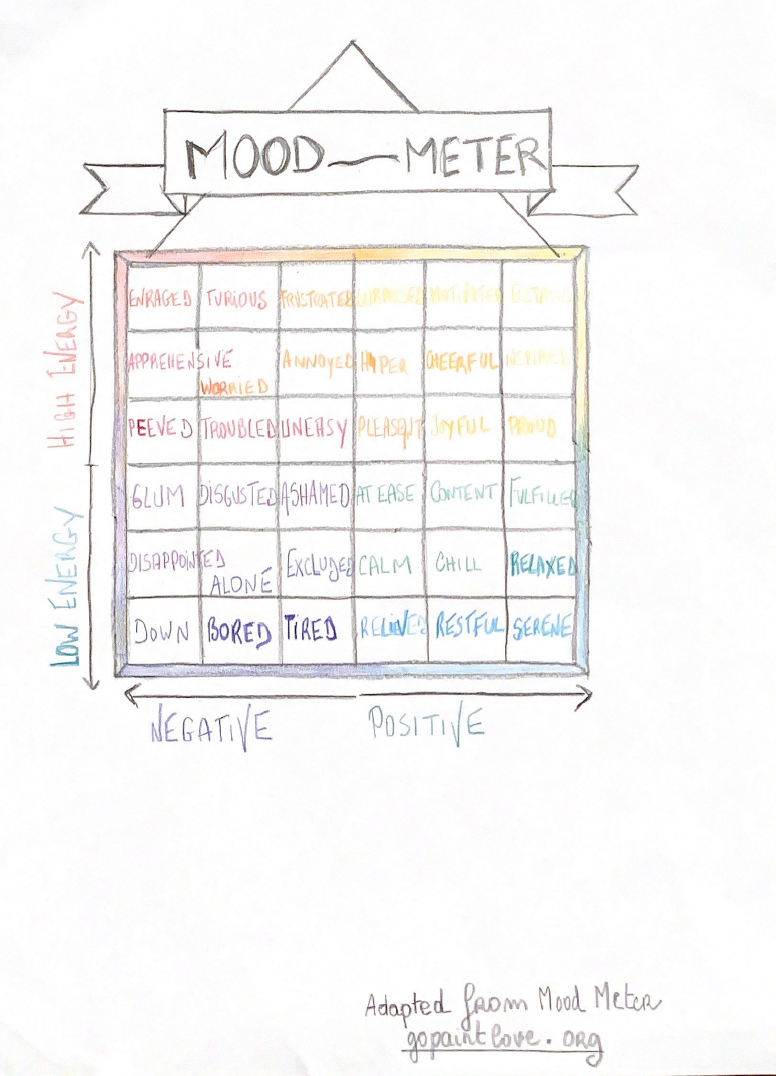 MOOD — METER
HIGH ENERGY
LOW ENERGY
ENRAGED FURIOUS FRUSTUATED SURPRISED MOTIVATED ECTATIC
APPREHENSIVE WORRIED ANNOYED HYPER CHEERFUL INSPIRED
PEEVED TROUBLED UNEASY PLEASANT JOYFUL PROUD
GLUM DISGUSTED ASHAMED AT EASE CONTENT FULFILLED
DISAPPOINTED ALONE EXCLUDED CALM CHILL RELAXED
DOWN BORED TIRED RELIEVED RESTFUL SERENE
NEGATIVE POSITIVE
Adapted from Mood Meter
gopaintlove.org